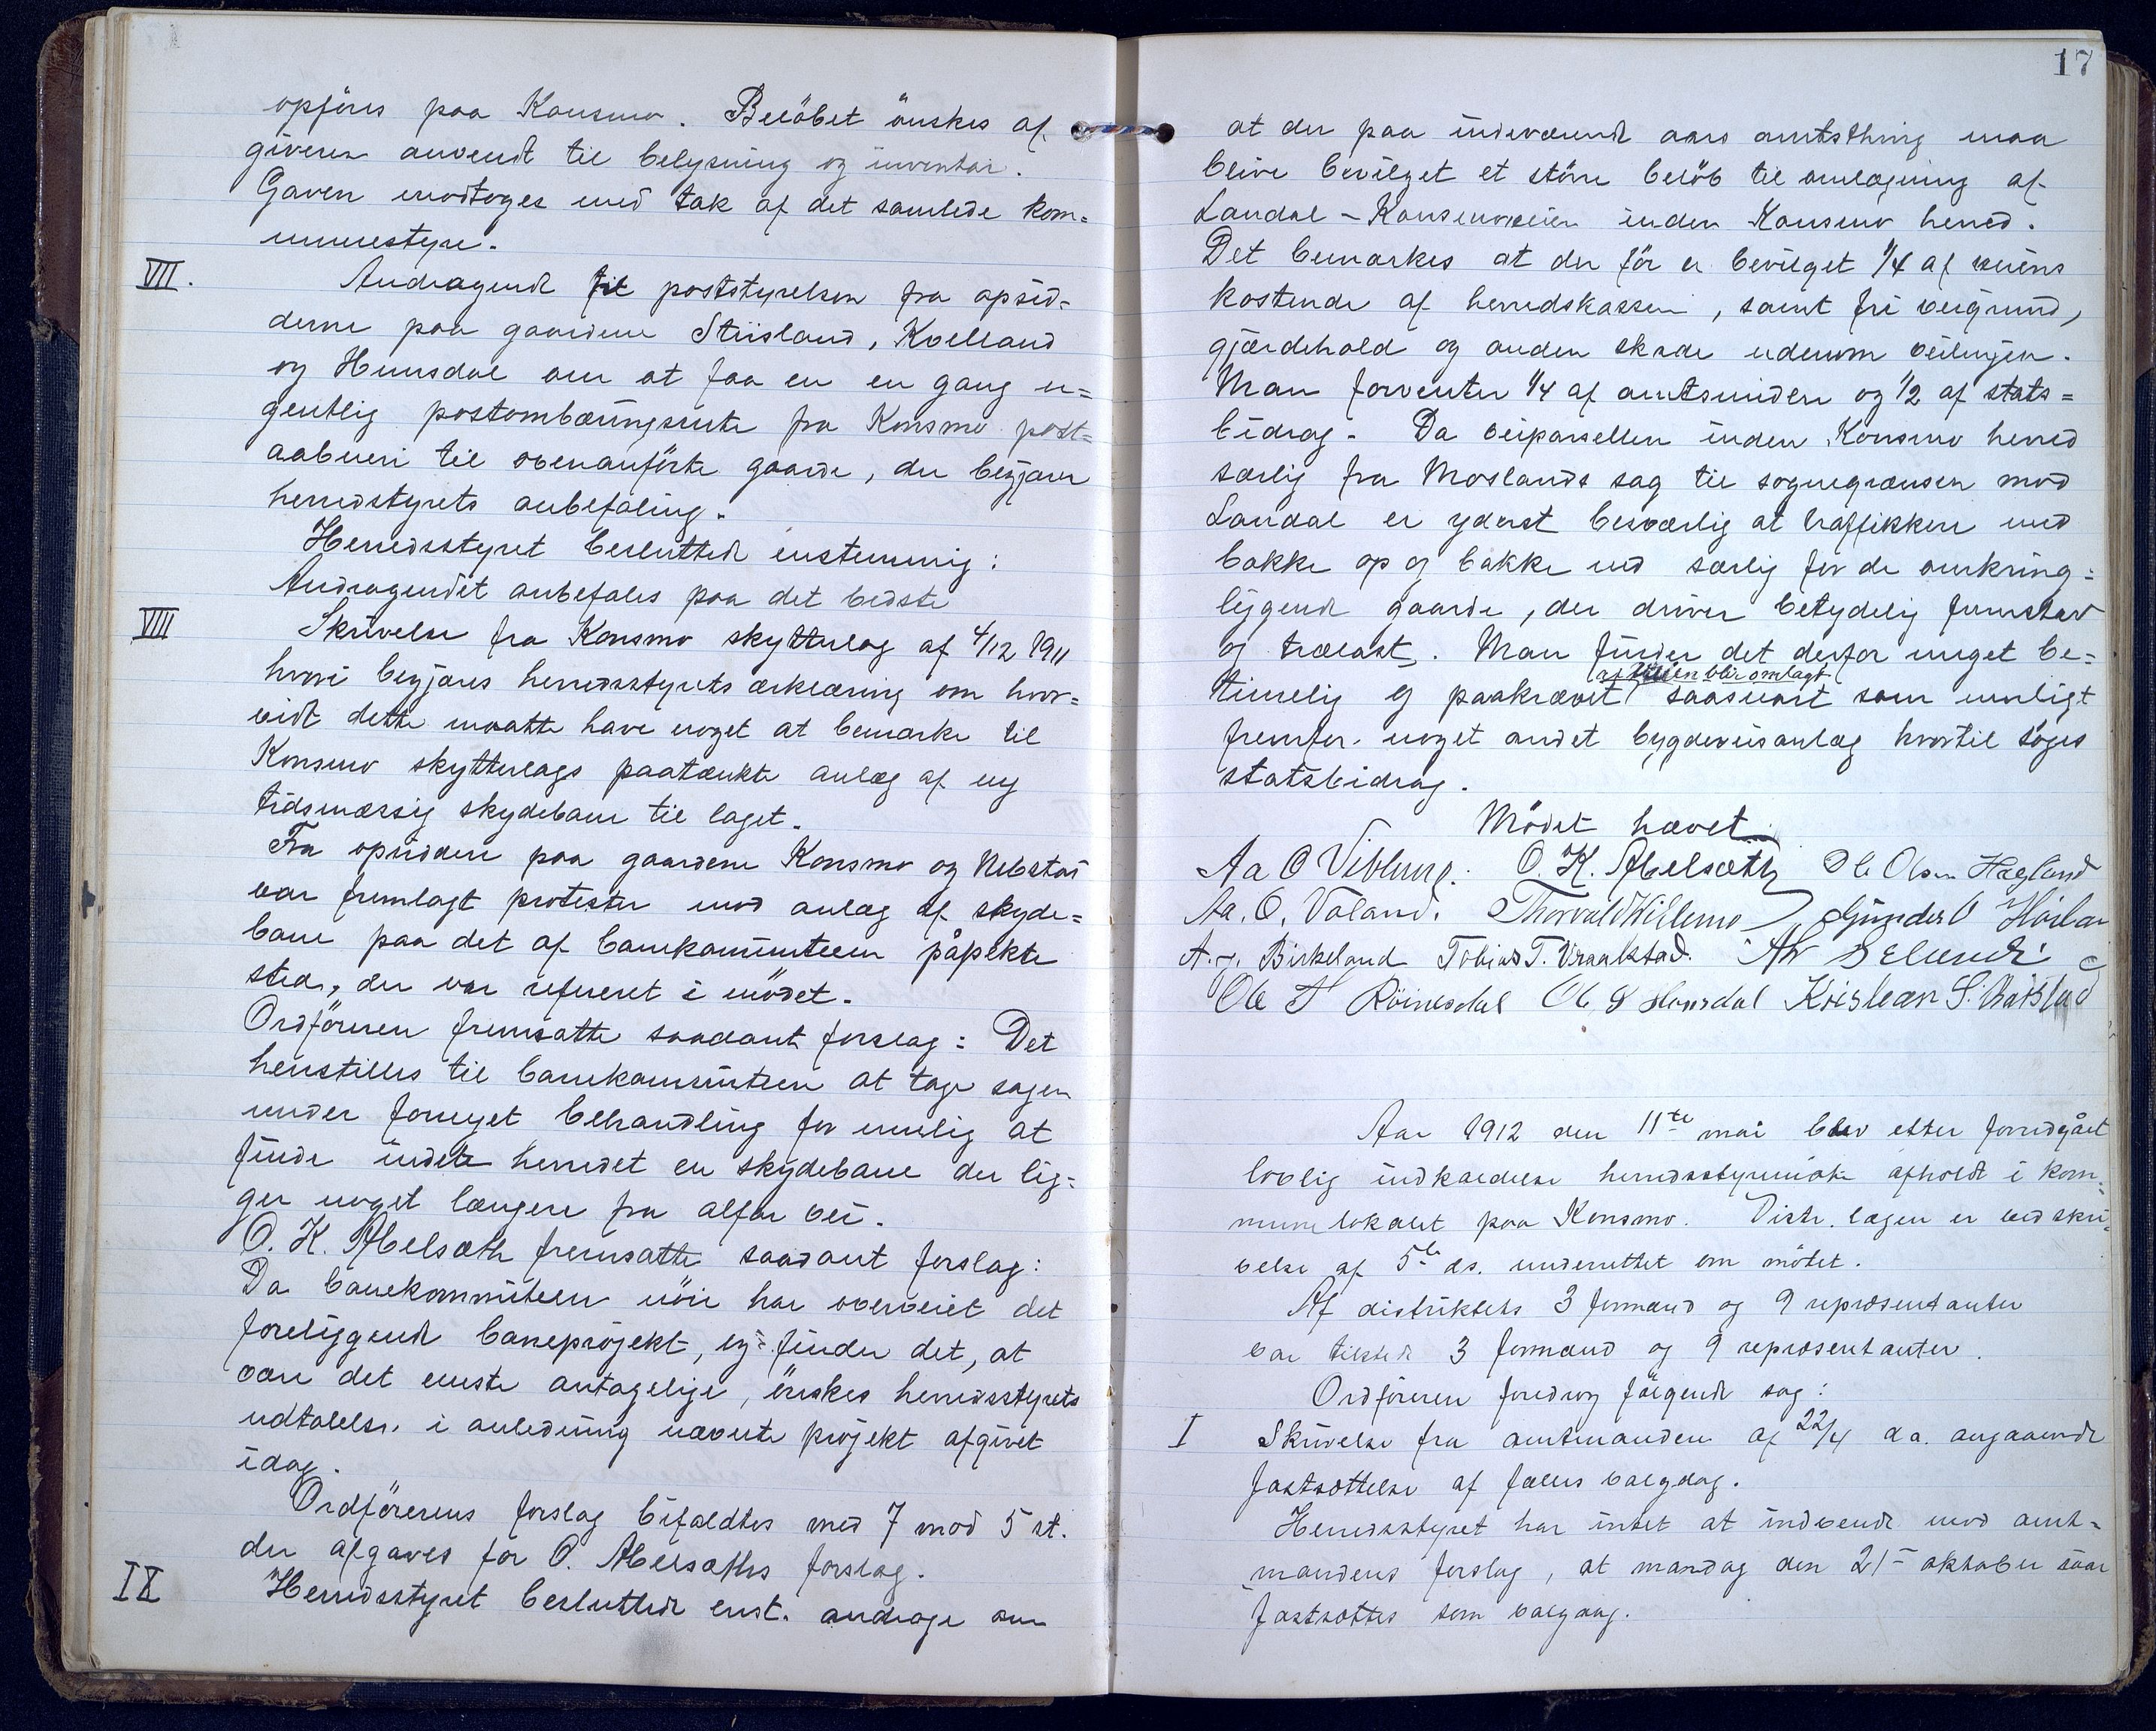 opføres paa Konsmo. Beløbet ønskes af
giveren anvendt til belysning og inventar.
Gaven modtoges med tak af det samlede kom=
munestyre.
VII. Andragende til poststyrelsen fra opsid=
derne paa gaardene Stiisland, Kvelland
og Hunsdal om at faa en en gang u=
gentlig postombæringsrute fra Konsmo post=
aabneri til ovenanførte gaarde, der begjærer
herredstyrets anbefaling.
Herredsstyret besluttede enstemmig:
Andragendet anbefales paa det bedste
VIII Skrivelse fra Konsmo skytterlag af 4/12 1911
hvori begjæres herredsstyrets erklæring om hvor=
vidt dette maatte have noget at bemærke til
Konsmo skytterlags paatænkte anlæg af ny
tidsmæssig skydebane til laget.
Fra opsiddere paa gaardene Konsmo og Nebstad
var fremlagt protester mod anlæg af skyde=
bane paa det af banekommiteen påpekte
sted, der var refereret i mødet.
Ordføreren fremsatte saadant forslag: Det
henstilles til banekommiteen at tage sagen
under fornyet behandling for mulig at
finde inden herredet en skydebane der lig=
ger noget længere fra alfar vei.
O. K. Abelsæth fremsatte saadant forslag:
Da banekommiteen nøie har overveiet det
foreliggende baneprojekt, og finder det, at
være det eneste antagelige, ønskes herredsstyrets
udtalelse i anledning nævnte projekt afgivet
idag.
Ordførerens forslag bifaldtes med 7 mod 5 st.
der afgaves for O. Abelsæths forslag.
IX Herredsstyret besluttede enst. andrage om
17
at der paa indeværende aars amtsthing maa
blive bevilget et større beløb til omlægning af
Landal - Konsmoveien inden Konsmo herred.
Det bemærkes at der før er bevilget 1/4 af veiens
kostende af herredskassen, samt fri veigrund,
gjærdehold og anden skade udenom veilinjen.
Man forventer 1/4 af amtsmidler og 1/2 af stats=
bidrag. Da veiparsellen inden Konsmo herred
særlig fra Moslands sag til sognegrænsen mod
Landal er yderst besværlig at traffikkere med
bakke op og bakke ned særlig for de omkring=
liggende gaarde, der driver betydelig
og trælast. Man finder det derfor meget be=
at veien blir omlagt
timelig og paakrævet saasnart som muligt
fremfor noget andet bygdeveisanlæg hvortil søges
statsbidrag.
Mødet hævet.
Aa O Viblemo. O. K. Abelsæth Ole Olsen Hægland
Aa. O. Valand. Thorvald Villemo Gunder O
A. J. Birkeland Tobias T. Vraalstad.
Ole T Røinesdal Ole Hunsdal Kristian S.
Aar 1912 den 11te mai blev efter foredgået
lovlig indkaldelse herredsstyremøte afholdt i kom=
munelokalet paa Konsmo. Distr. lægen er ved skri=
velse af 5te ds. underrettet om møtet.
Af distriktets 3 formænd og 9 repræsentanter
var tilstede 3 formænd og 9 repræsentanter.
Ordføreren foredrog følgende sag:
I Skrivelse fra amtmanden af 22/4 d.a. angaaende
fastsættelse af fælles valgdag.
Herredsstyret har intet at indvende mod amt=
mandens forslag, at mandag den 21- oktober iaar
fastsættes som valgdag.